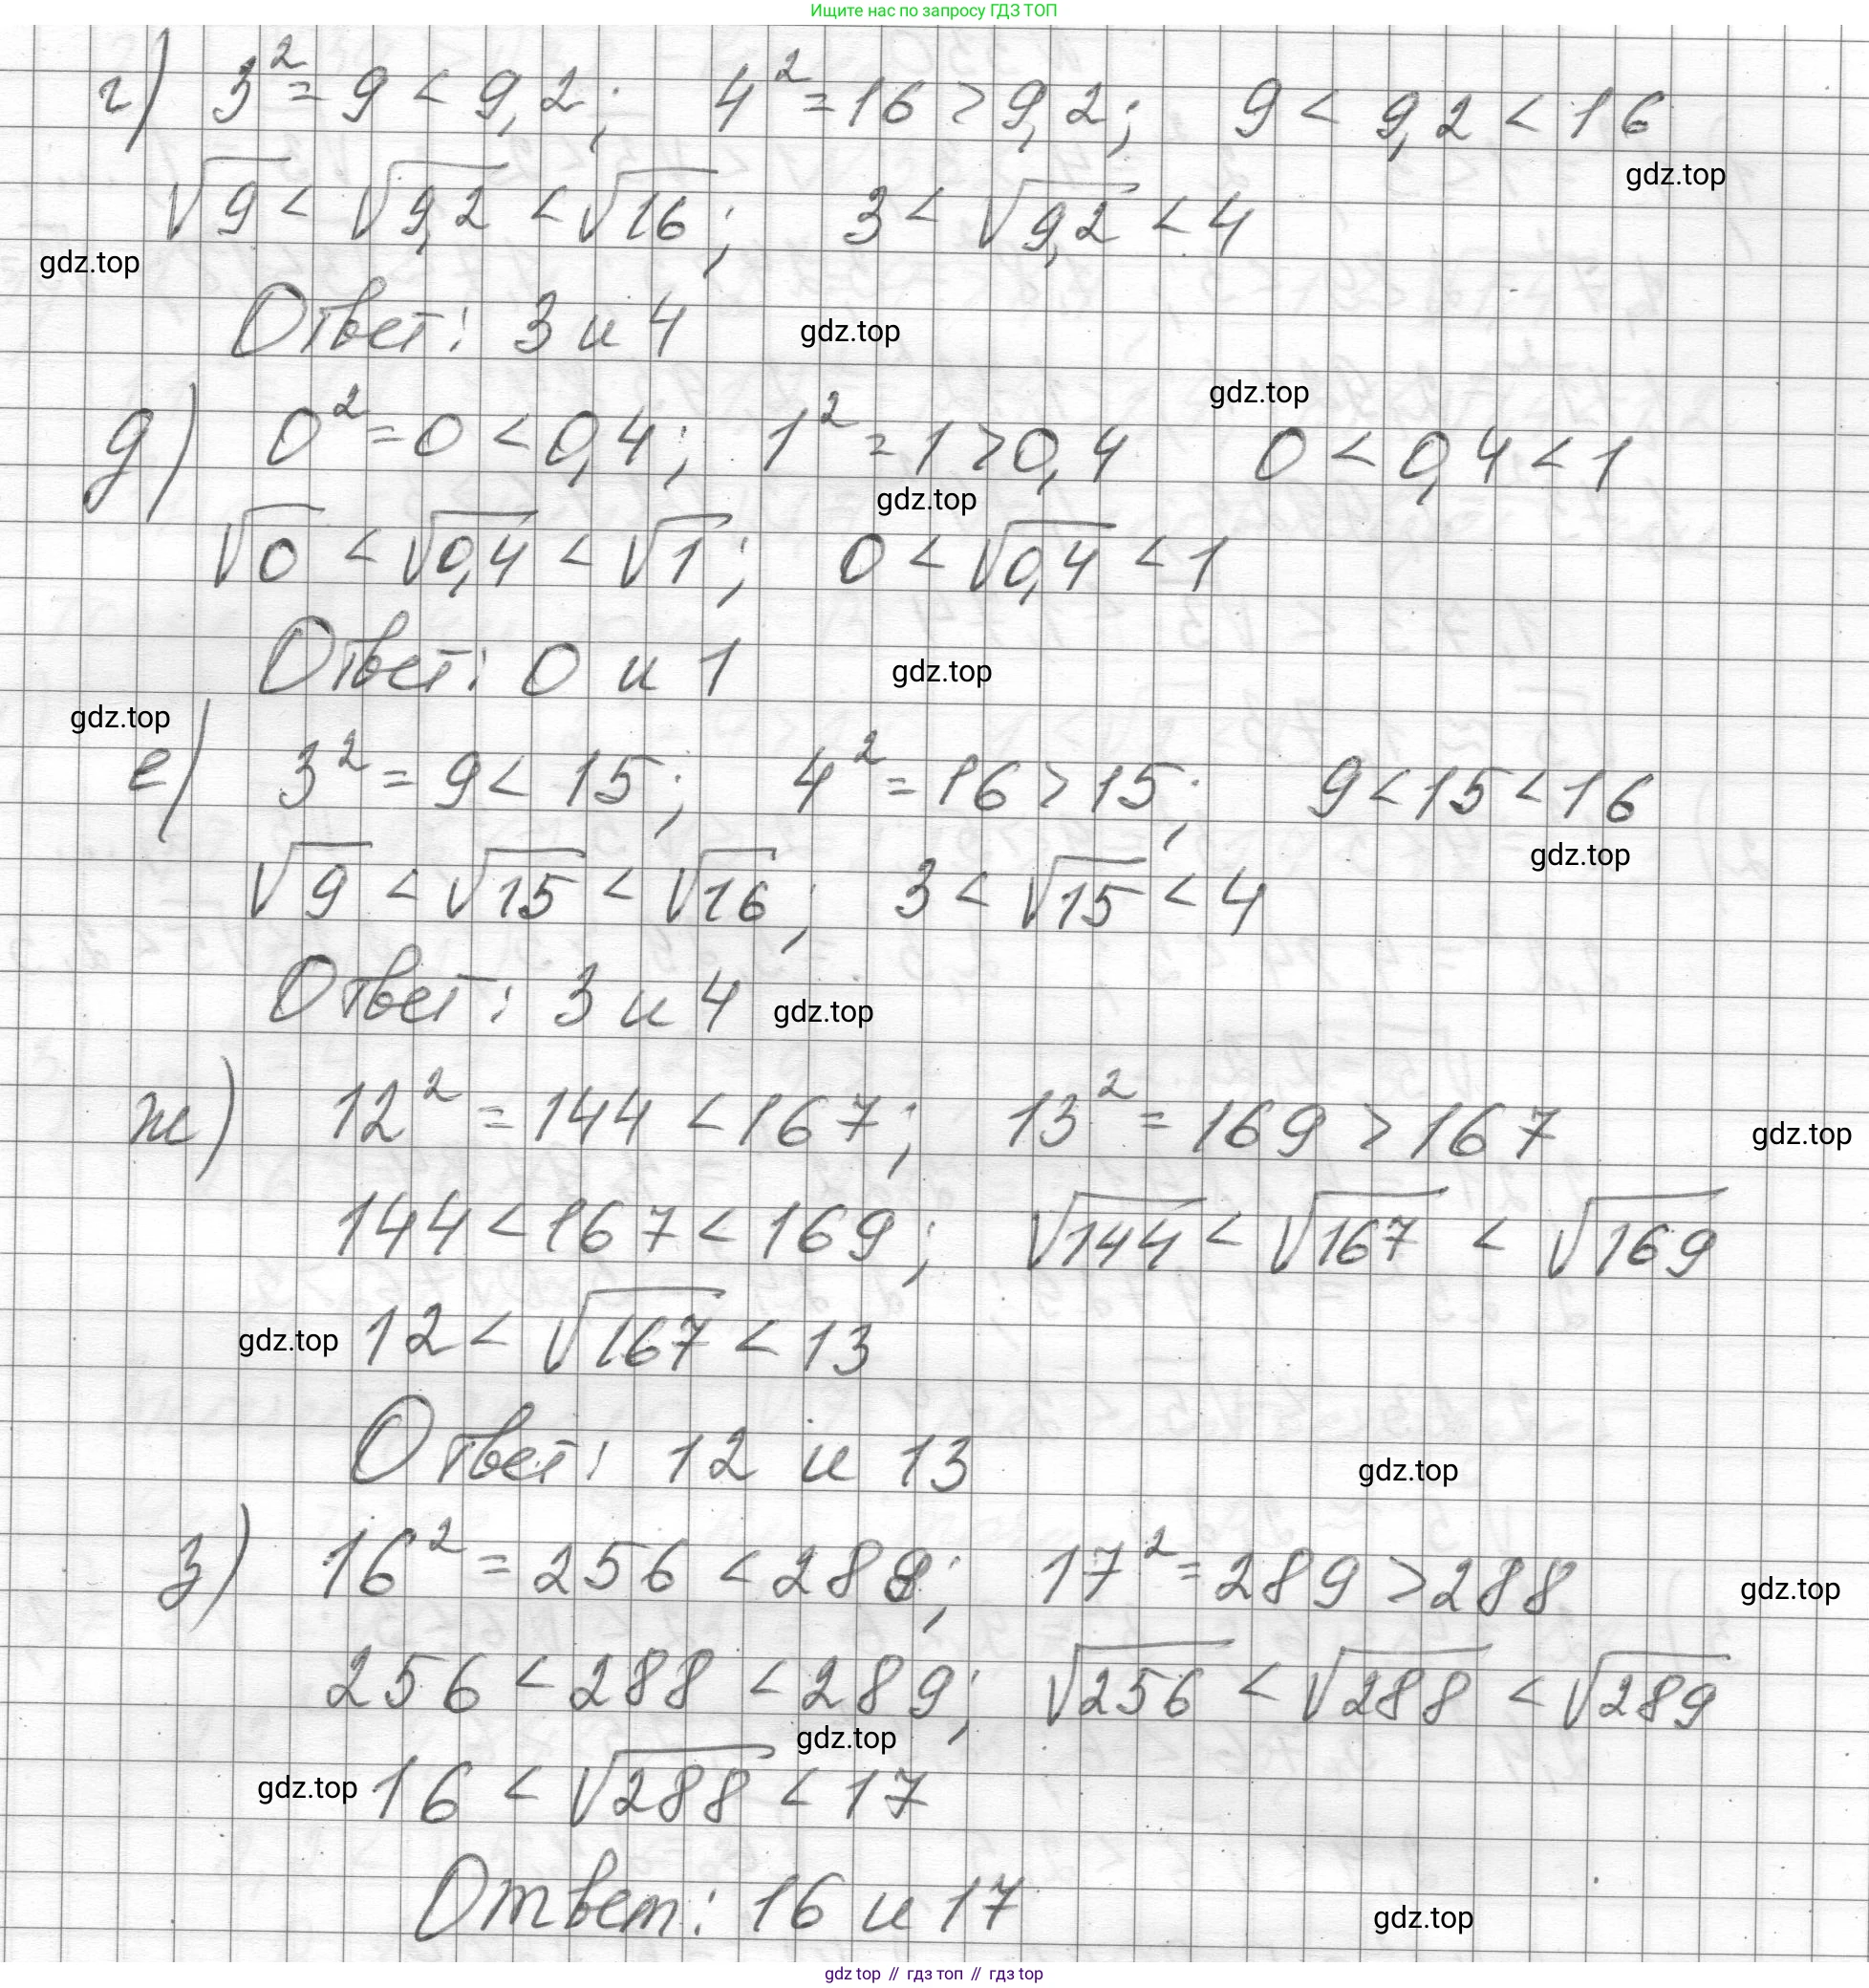 Ищите нас по запросу ГДЗ ТОП
г) 3² = 9 < 9,2; 4² = 16 > 9,2; 9 < 9,2 < 16
gdz.top
√9 < √9,2 < √16; 3 < √9,2 < 4
gdz.top
Ответ: 3 и 4 gdz.top
gdz.top
д) 0² = 0 < 0,4; 1² = 1 > 0,4 0 < 0,4 < 1
gdz.top
√0 < √0,4 < √1; 0 < √0,4 < 1
Ответ: 0 и 1 gdz.top
gdz.top
е) 3² = 9 < 15; 4² = 16 > 15; 9 < 15 < 16
gdz.top
√9 < √15 < √16; 3 < √15 < 4
Ответ: 3 и 4 gdz.top
ж) 12² = 144 < 167; 13² = 169 > 167 gdz.top
144 < 167 < 169; √144 < √167 < √169
gdz.top 12 < √167 < 13
Ответ: 12 и 13 gdz.top
з) 16² = 256 < 288; 17² = 289 > 288 gdz.top
256 < 288 < 289; √256 < √288 < √289
gdz.top
gdz.top 16 < √288 < 17
Ответ: 16 и 17 gdz.top
gdz top // гдз топ // гдз top